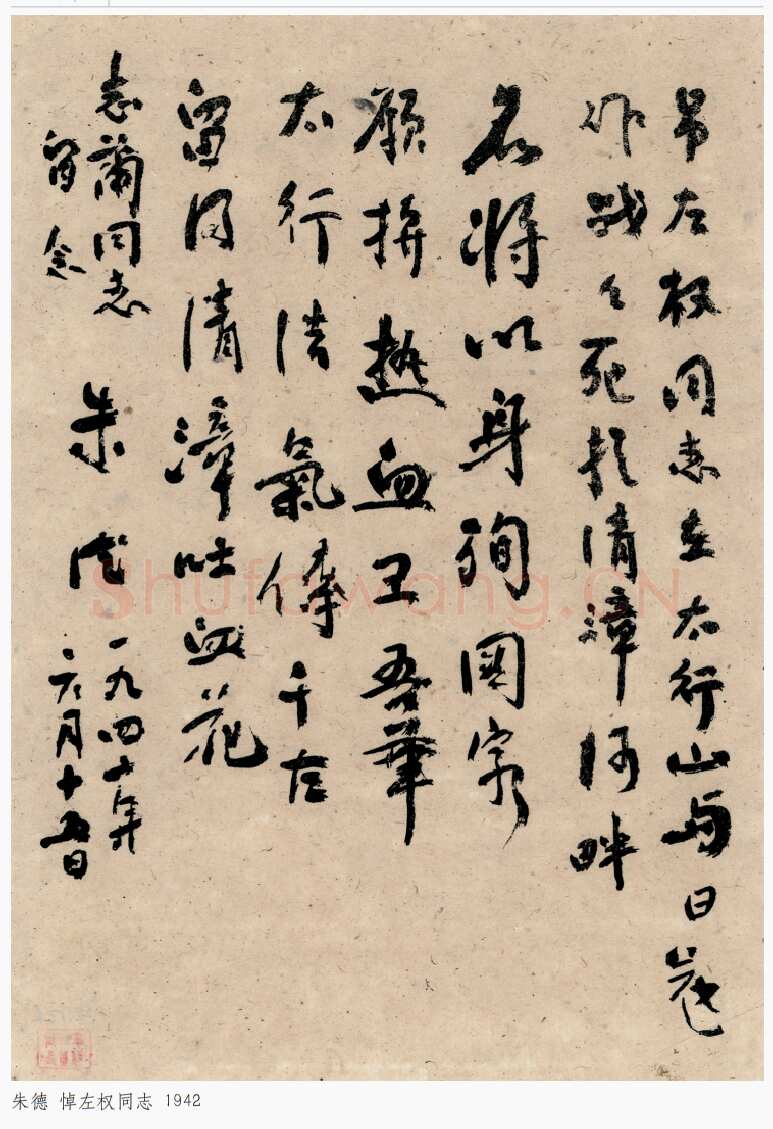 吊左权同志在太行山与日寇
作战々死於清漳河畔
名将以身殉國家
願拚热血卫吾華
太行浩氣傳千古
留得清漳吐血花
志蘭同志
留念
朱德
一九四二年
六月十五日
Shufawang.CN
朱德 悼左权同志 1942